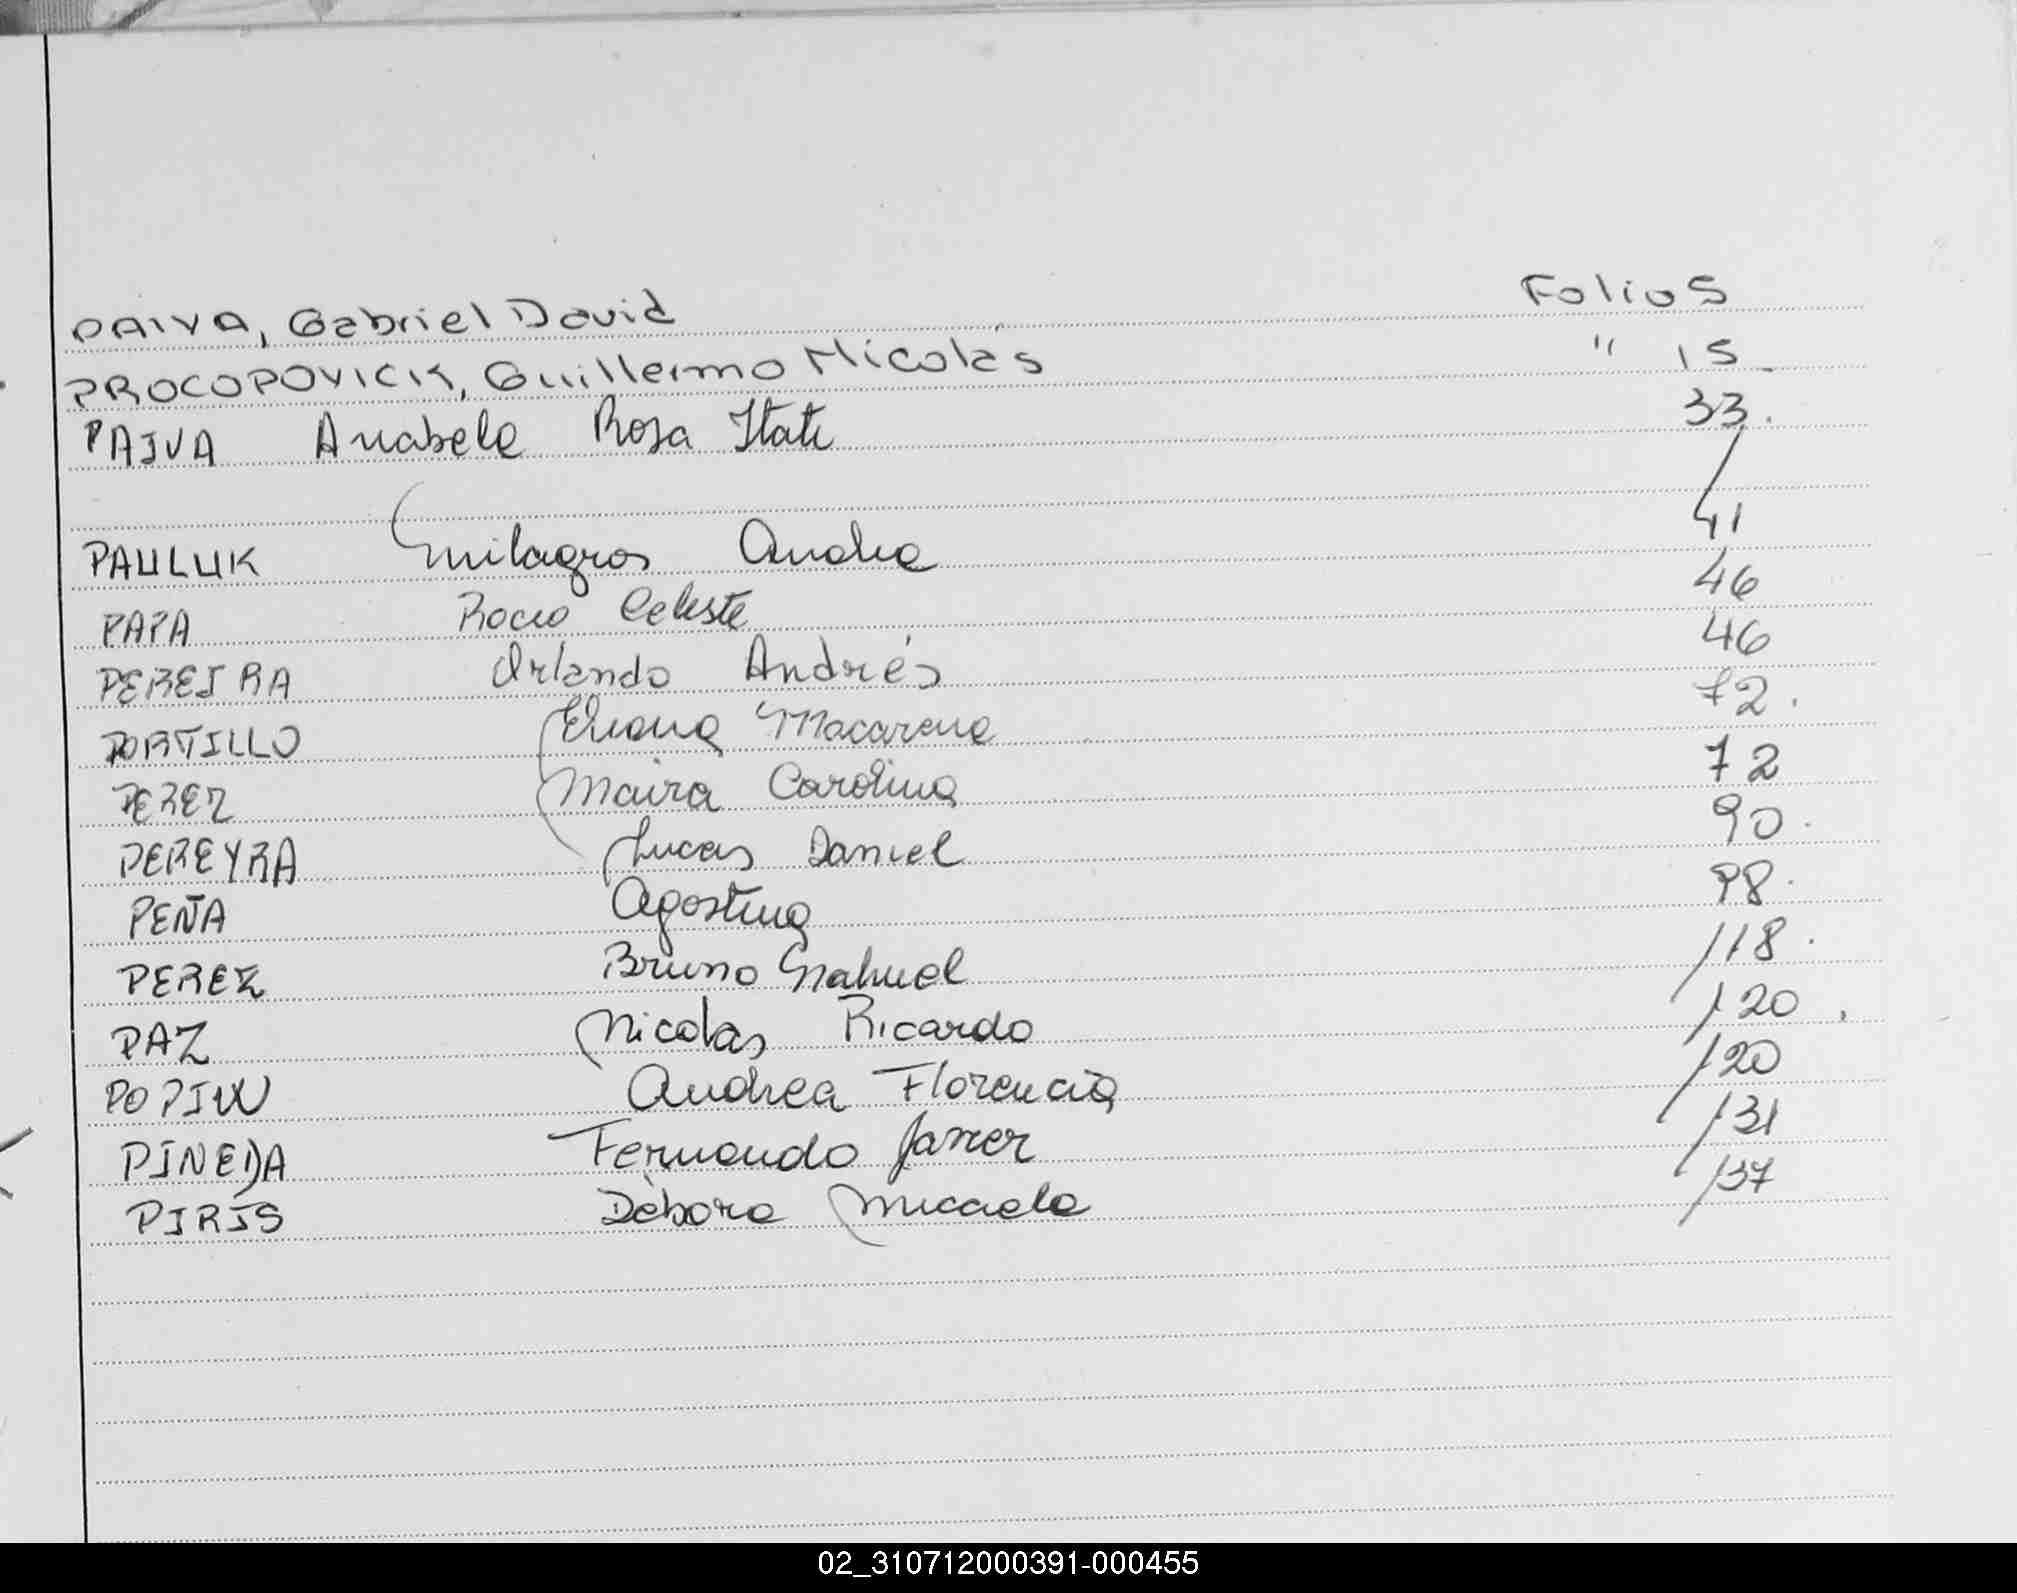 PAIVA, Gabriel David Folio 5
PROCOPOVICK, Guillermo Nicolás " 15
PAIVA Anabela Rosa Itati 33.
PAULUK Milagros Andrea 41
PAPA Rocio Celeste 46
PEREIRA Orlando Andrés 46
PORTILLO Eliana Macarena 72.
PEREZ Maira Carolina 72
PEREYRA Lucas Daniel 90.
PEÑA Agostina 98.
PEREZ Bruno Nahuel 118.
PAZ Nicolas Ricardo 120.
Andrea Florencia 120
PINEDA Fernando Javier 131
PIRIS Dèbora Micaela 137
02_310712000391-000455